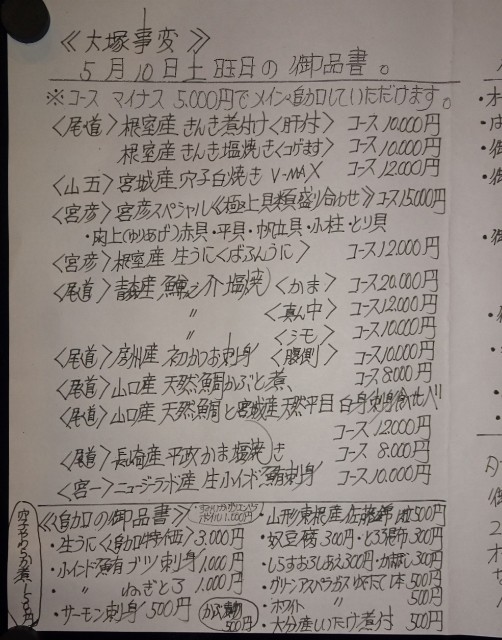 《大塚事変》
5月10日土曜日の御品書。
※コース マイナス 5.000円でメインへ追加していただけます。
〈尾道〉根室産 きんき煮付け〈肝付〉 コース10.000円
根室産 きんき塩焼き〈コゲます〉 コース10.000円
〈山五〉宮城産 穴子白焼き V-MAX コース12.000円
〈宮彦〉宮彦スペシャル《極上貝類盛り合わせ》コース15.000円
・閖上(ゆりあげ)赤貝・平貝・帆立貝・小柱・とり貝
〈宮彦〉根室産 生うに〈ばふんうに〉 コース12.000円
〈尾道〉青森産 塩焼〈かま〉 コース20.000円
〃 〈真ん中〉 コース12.000円
〈シモ〉 コース10.000円
〈尾道〉房州産 初かつお刺身〈腹側〉 コース10.000円
〈尾道〉山口産 天然鯛かぶと煮、 コース8.000円
〈尾道〉山口産 天然鯛と宮城産天然平目 白身刺身食べ比べ
コース12.000円
〈尾道〉長崎産 平政かま塩焼き コース8.000円
〈宮一〉ニュージーランド産 生小インド鮪刺身 コース10.000円
《追加の御品書》
・生うに〈追加特価〉3.000円
・小インド鮪ブツ刺身 1.000円
・〃 ねぎとろ 1.000円
・サーモン刺身 500円
500円
穴子やわらか煮
・山形東根産佐藤錦 500円
・奴豆腐 300円・とろろ 300円
・しらすおろしあえ 300円・ 300円
・グリーンアスパラガスゆたて1本 500円
・ホワイト 〃 500円
・大分産しいたけ煮付 500円